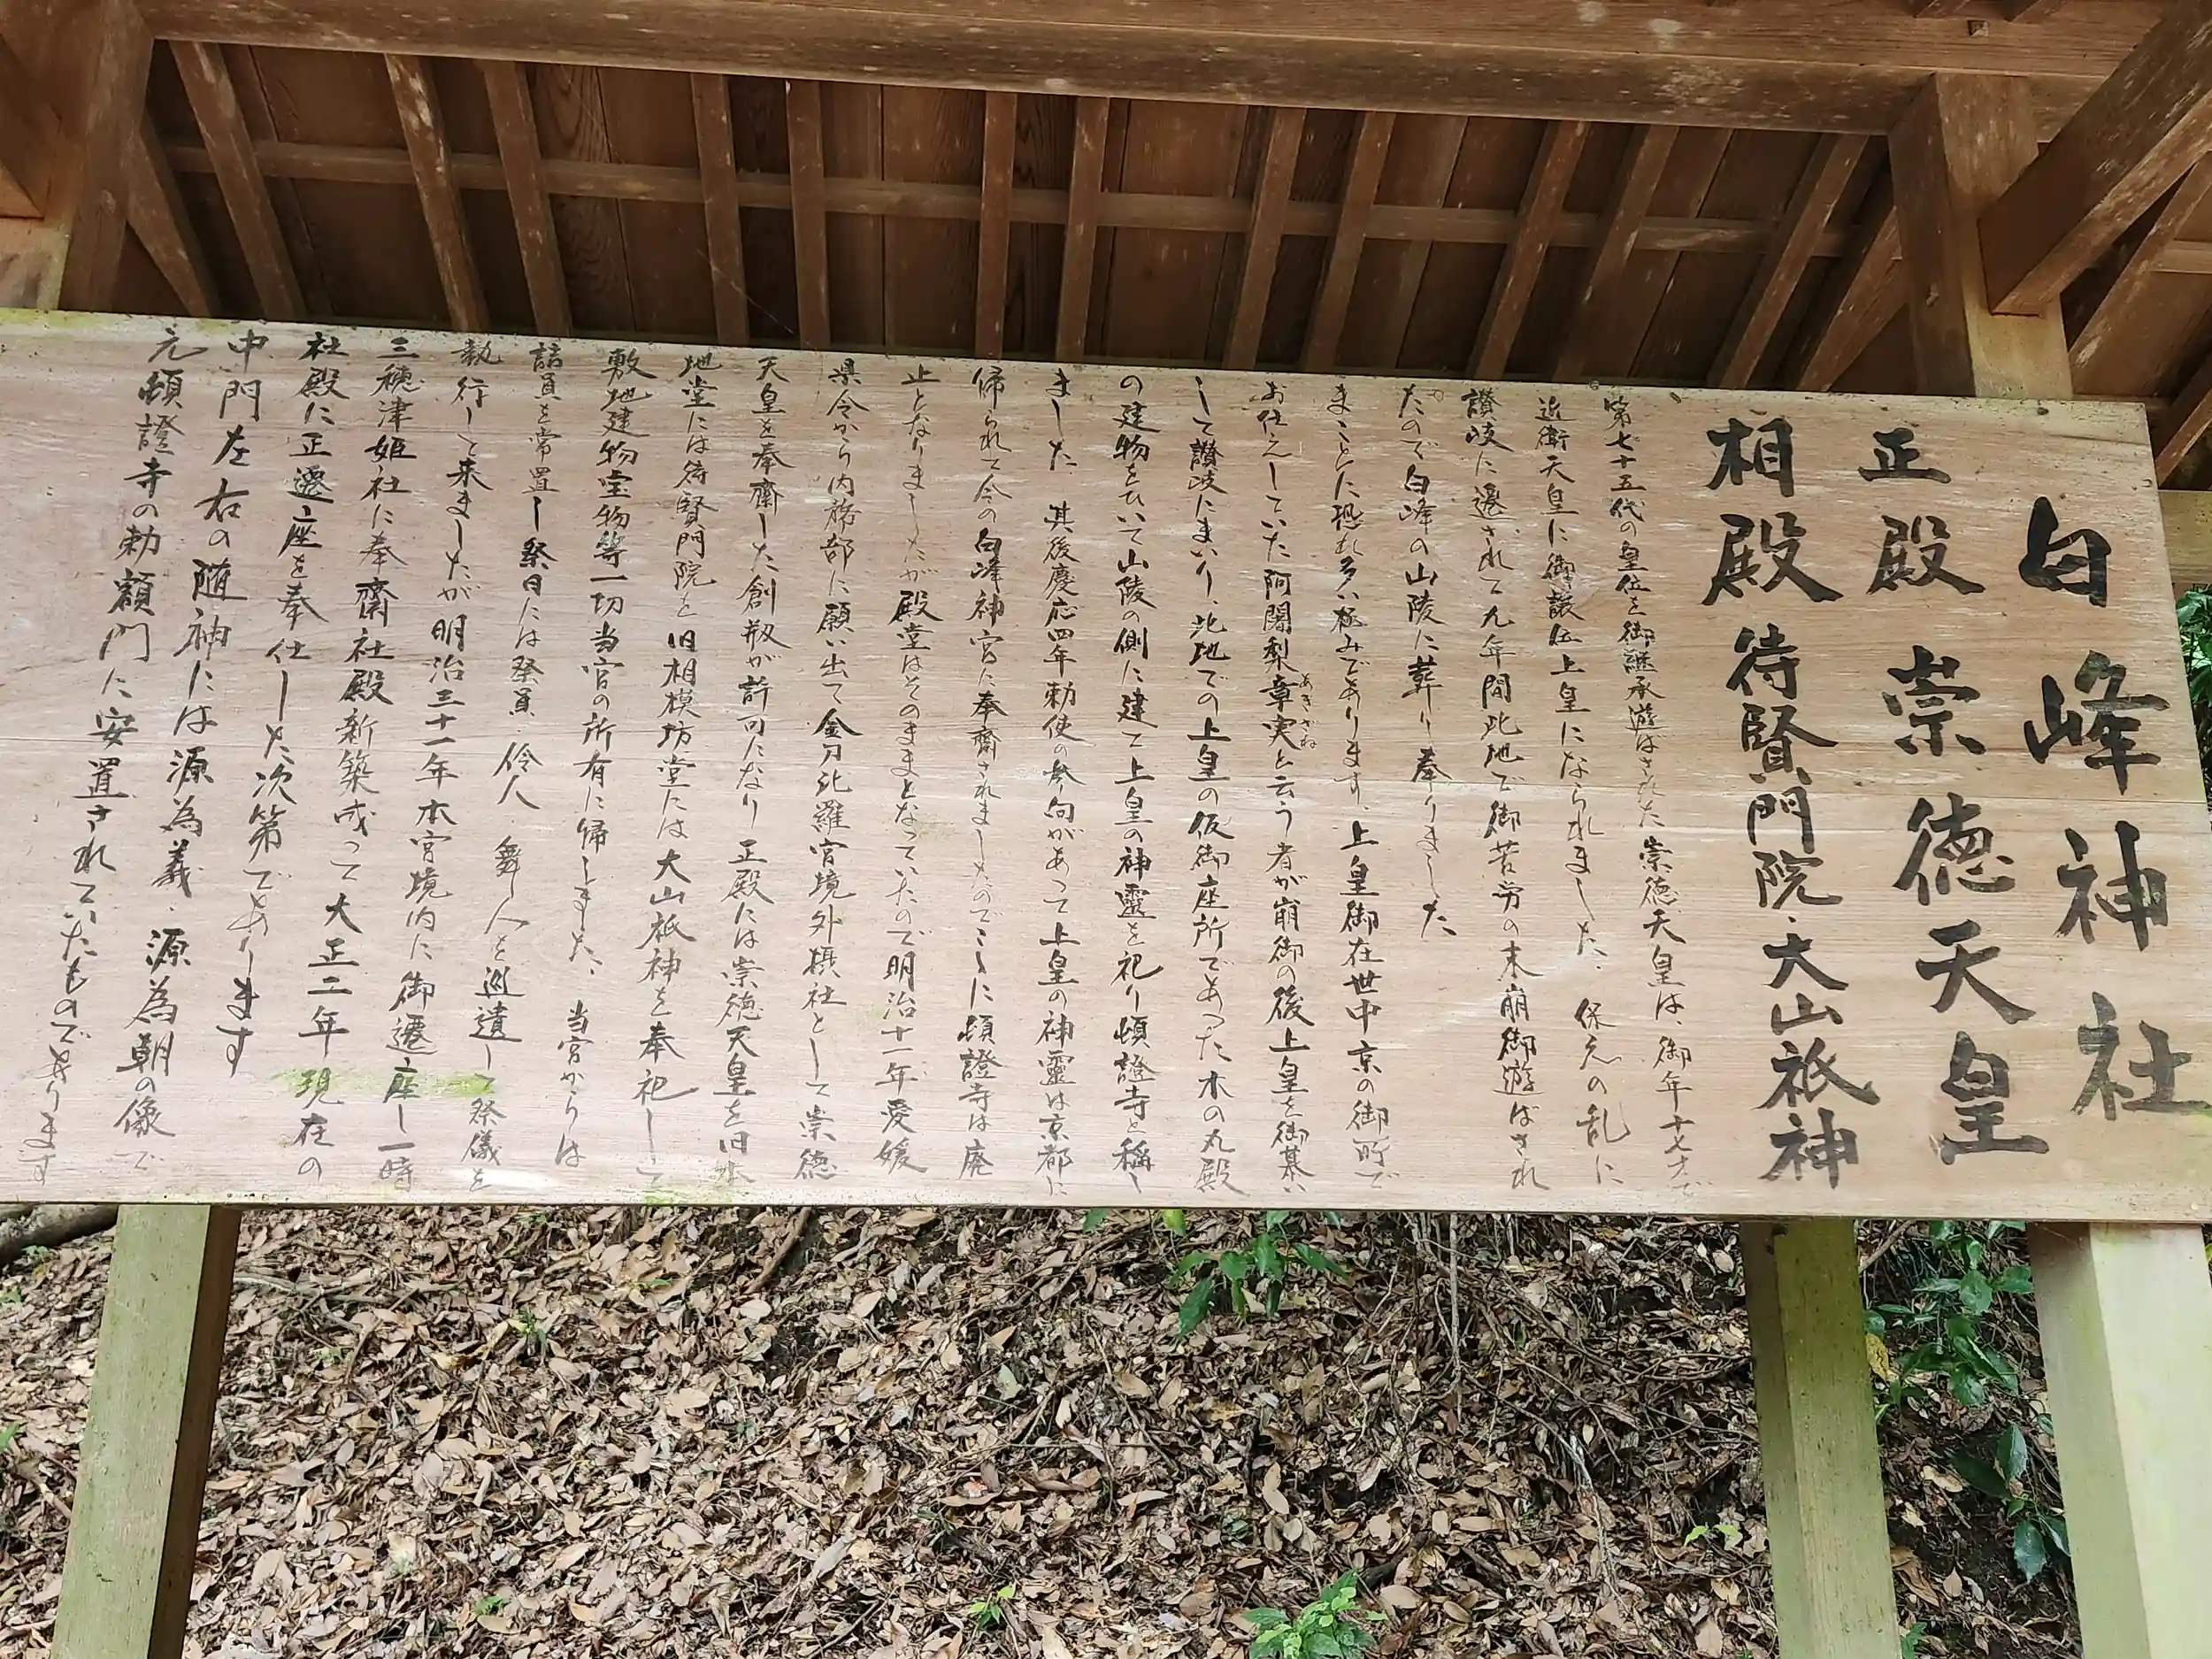 白峰神社
正殿 崇徳天皇
相殿 待賢門院・大山祇神
第七十五代の皇位を御継承遊はされた崇徳天皇は、御年十七才で
近衛天皇に御譲位上皇になられました、保元の乱に
讃岐に遷されて九年間此地で御苦労の末崩御遊ばされ
たので白峰の山陵に葬り奉りました
まことに恐れ多い極みであります、上皇御在世中京の御所で
お仕えしていた阿闍梨章実と云う者が崩御の後上皇を御慕い
あきざね
して讃岐にまいり、此地での上皇の仮御座所であった木の丸殿
の建物をひいて山陵の側に建て上皇の神霊を祀り頓證寺と稱し
ました 其後慶応四年勅使の参向があって上皇の神靈は京都に
帰られて今の白峰神宮に奉齋されましたのでここに頓證寺は廃
止となりましたが殿堂はそのままとなっていたので明治十一年愛媛
県令から内務部に願い出て金刀比羅宮境外摂社として崇徳
天皇を奉齋した創祀が許可になり正殿には崇徳天皇を旧本
地堂には待賢門院を旧相模坊堂には大山祇神を奉祀して
敷地建物宝物等一切当宮の所有に帰しました、当宮からは
詰員を常置し祭日には祭員 伶人 舞人を巡遣して祭儀を
執行して来ましたが明治三十一年本宮境内に御遷座し一時
三穂津姫社に奉齋社殿新築成って大正二年現在の
社殿に正遷座を奉仕した次第であります
中門左右の随神には源為義・源為朝の像で
元頓證寺の勅額門に安置されていたものであります